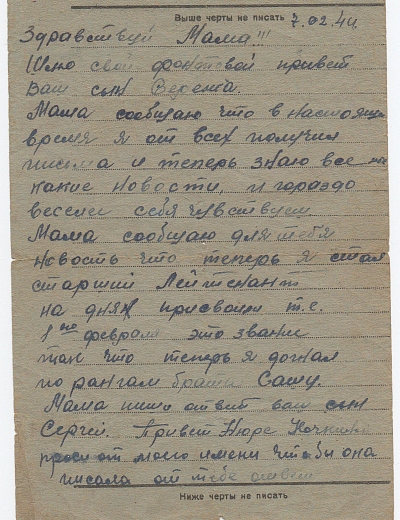 Выше черты не писать
7.02.44
Здравствуй Мама!!!
Шлю свой фронтовой привет
Ваш сын
Мама сообщаю что в настоящи
время я от всех получил
письма и теперь знаю все
какие новости, и гораздо
веселей себя чувствуеш
Мама сообщаю для тебя
новость что теперь я стал
старший Лейтенант
на днях присвоили т.е.
1го февраля это звание
так что теперь я догнал
по рангам брата Сашу.
Мама пиши ответ ваш сын
Сергей. Привет Нюре
проси от моего имени чтобы она
писала от тебе ответ
Ниже черты не писать